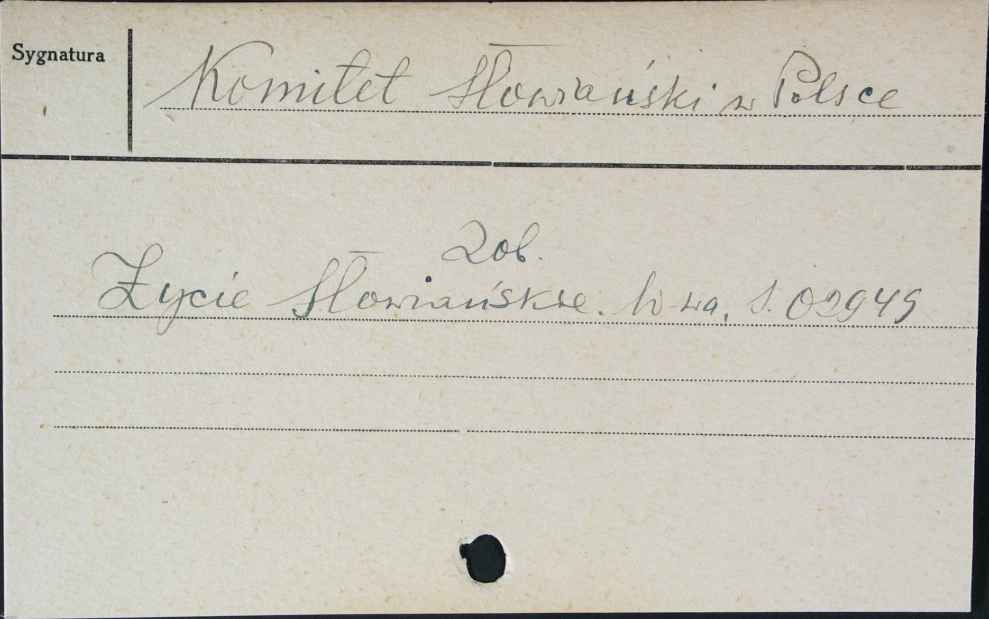 Sygnatura
Komitet Słowiański w Polsce
Zob.
Życie Słowiańskie. W-wa, S. 02949